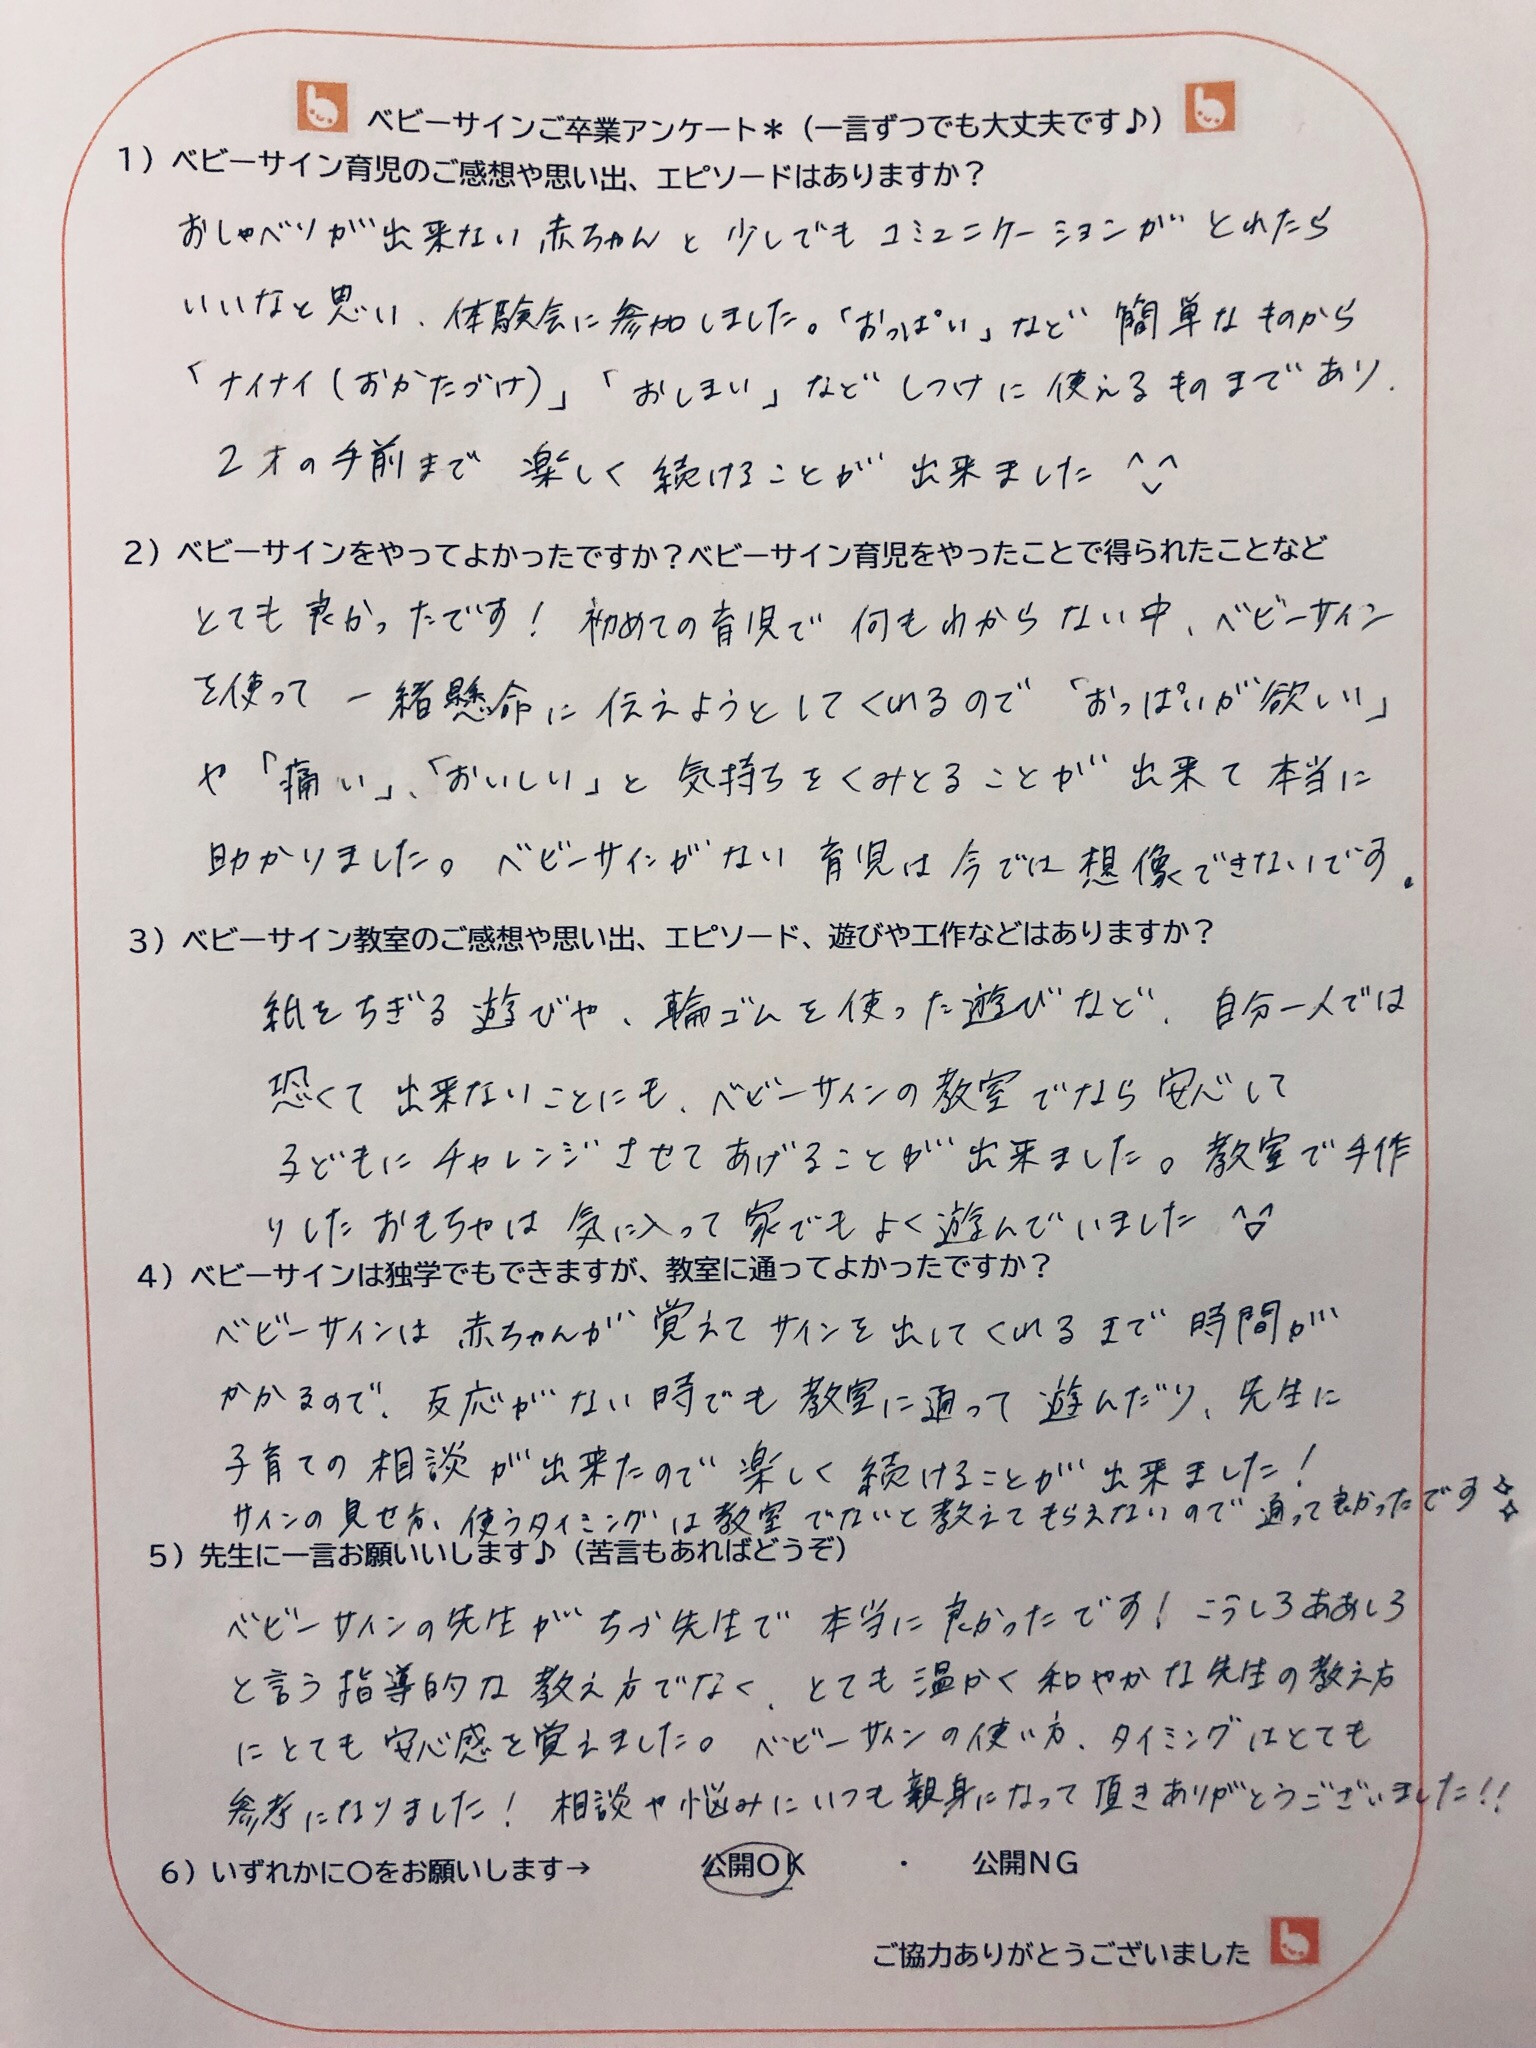 ベビーサインご卒業アンケート＊（一言ずつでも大丈夫です♪）
１）ベビーサイン育児のご感想や思い出、エピソードはありますか？
おしゃべりが出来ない赤ちゃんと少しでもコミュニケーションがとれたら
いいなと思い、体験会に参加しました。「おっぱい」など簡単なものから
「ナイナイ（おかたづけ）」「おしまい」などしつけに使えるものまであり、
２才の手前まで楽しく続けることが出来ました ^◡^
２）ベビーサインをやってよかったですか？ベビーサイン育児をやったことで得られたことなど
とても良かったです！初めての育児で何もわからない中、ベビーサイン
を使って一緒懸命に伝えようとしてくれるので「おっぱいが欲しい」
や「痛い」、「おいしい」と気持ちをくみとることが出来て本当に
助かりました。ベビーサインがない育児は今では想像できないです。
３）ベビーサイン教室のご感想や思い出、エピソード、遊びや工作などはありますか？
紙をちぎる遊びや、輪ゴムを使った遊びなど、自分一人では
恐くて出来ないことにも、ベビーサインの教室でなら安心して
子どもにチャレンジさせてあげることが出来ました。教室で手作
りしたおもちゃは気に入って家でもよく遊んでいました
４）ベビーサインは独学でもできますが、教室に通ってよかったですか？
ベビーサインは赤ちゃんが覚えてサインを出してくれるまで時間が
かかるので、反応がない時でも教室に通って遊んだり、先生に
子育ての相談が出来たので楽しく続けることが出来ました！
サインの見せ方、使うタイミングは教室でないと教えてもらえないので通って良かったです
５）先生に一言お願いいします♪（苦言もあればどうぞ）
ベビーサインの先生がちづ先生で本当に良かったです！こうしろああしろ
と言う指導的な教え方でなく、とても温かく和やかな先生の教え方
にとても安心感を覚えました。ベビーサインの使い方、タイミングはとても
参考になりました！相談や悩みにいつも親身になって頂きありがとうございました!!
６）いずれかに〇をお願いします→ 公開ＯＫ ・ 公開ＮＧ
ご協力ありがとうございました